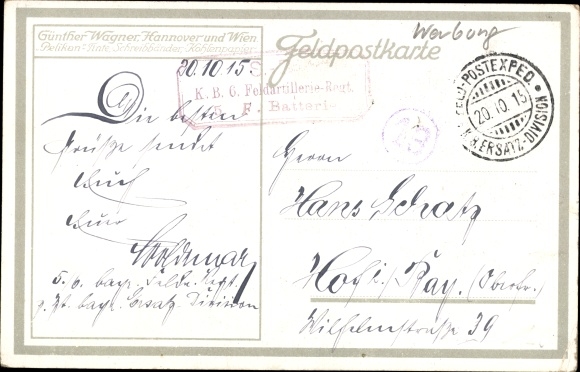 Günther Wagner, Hannover und Wien
Pelikan-Tinte, Schreibbänder, Kohlenpapier
Feldpostkarte
Werbung
20.10.15.
K. B. 6. Feldartillerie-Regt.
5. F. Batterie
FELD-POSTEXPED.
20.10.15
ERSATZ-DIVISION
Die besten
Grüße sendet
Euch
Euer
Woldemar
5. b. bayr. Feldr. Regt.
bayr. Ersatz Division
Herrn
Hans Schatz
Hof i/ Bay. (Oberfr.)
Wilhelmstraße 39